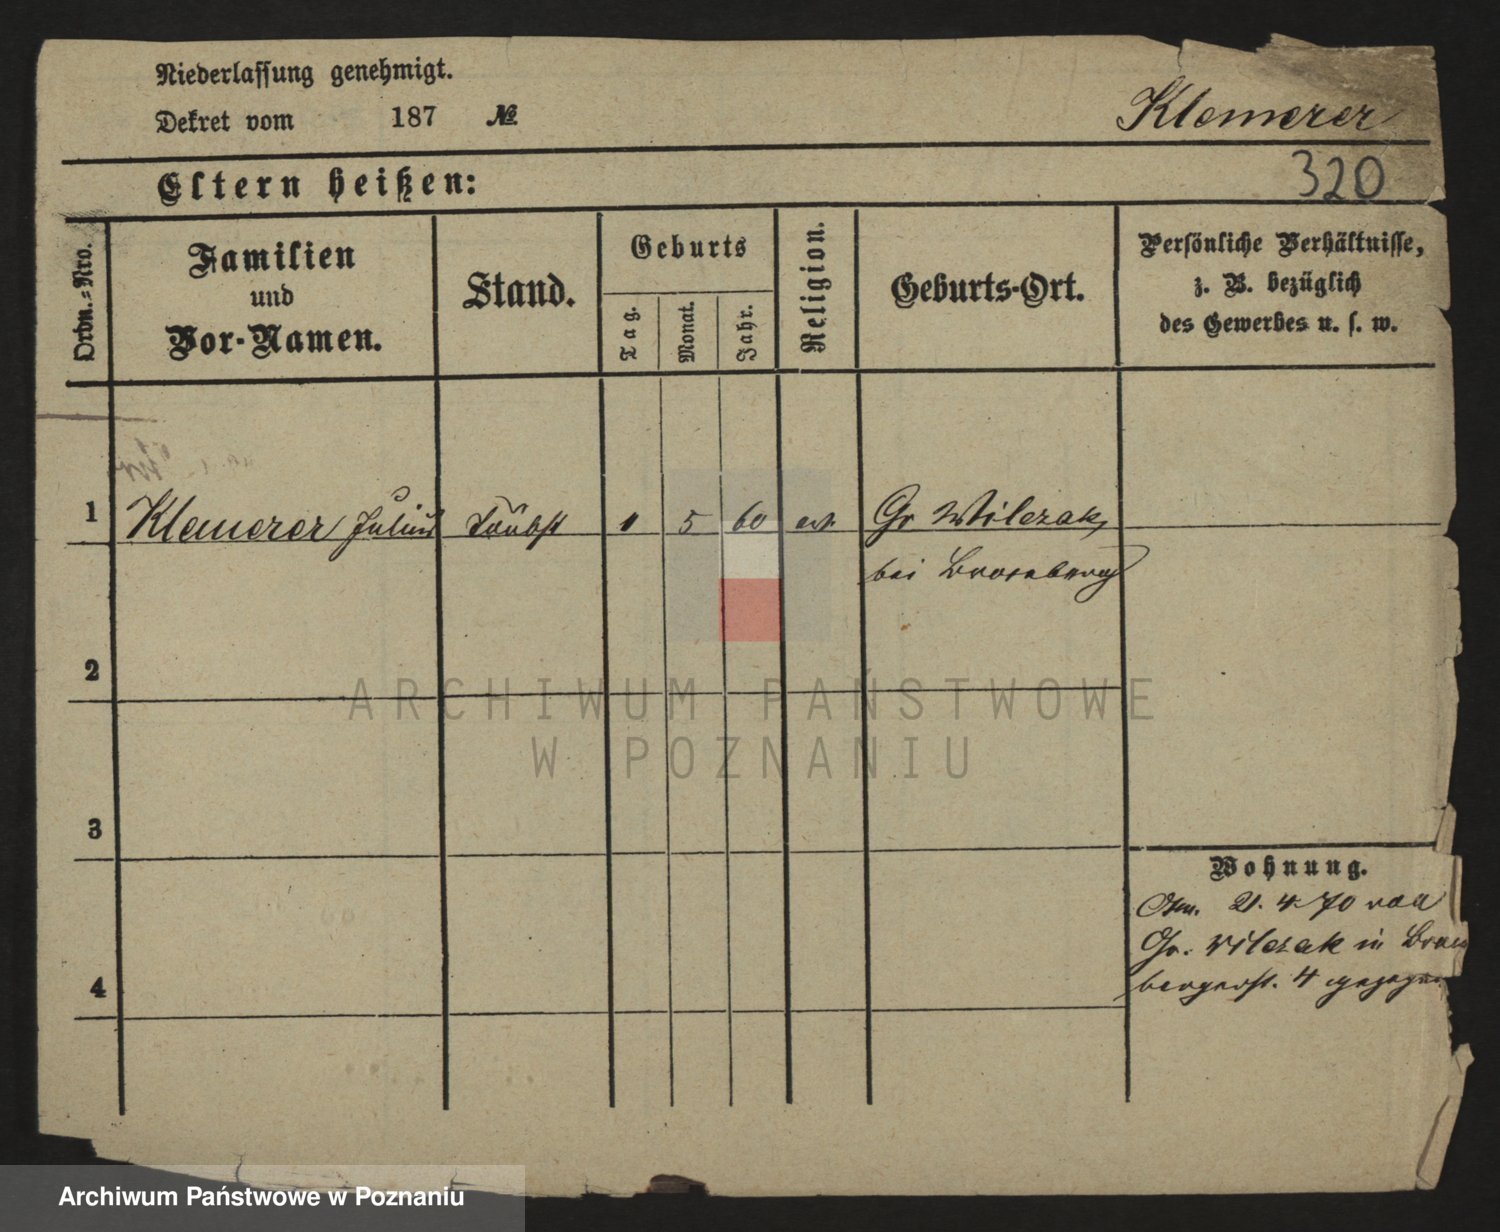 Niederlassung genehmigt.
Dekret vom 187 №
Klemerer
320
Eltern heißen:
Ordn.-Nro.
Familien
und
Vor-Namen.
Stand.
Geburts
Tag.
Monat.
Jahr.
Religion.
Geburts-Ort.
Persönliche Verhältnisse,
z. B. bezüglich
des Gewerbes u. s. w.
1 Klemerer Julius 1 5 60 Gr Wilczak,
bei Bromberg
2
ARCHIWUM PAŃSTWOWE
W POZNANIU
3
Wohnung.
21. 4. 70 von
Gr. Wilczak in
bergerst. 4
4
Archiwum Państwowe w Poznaniu